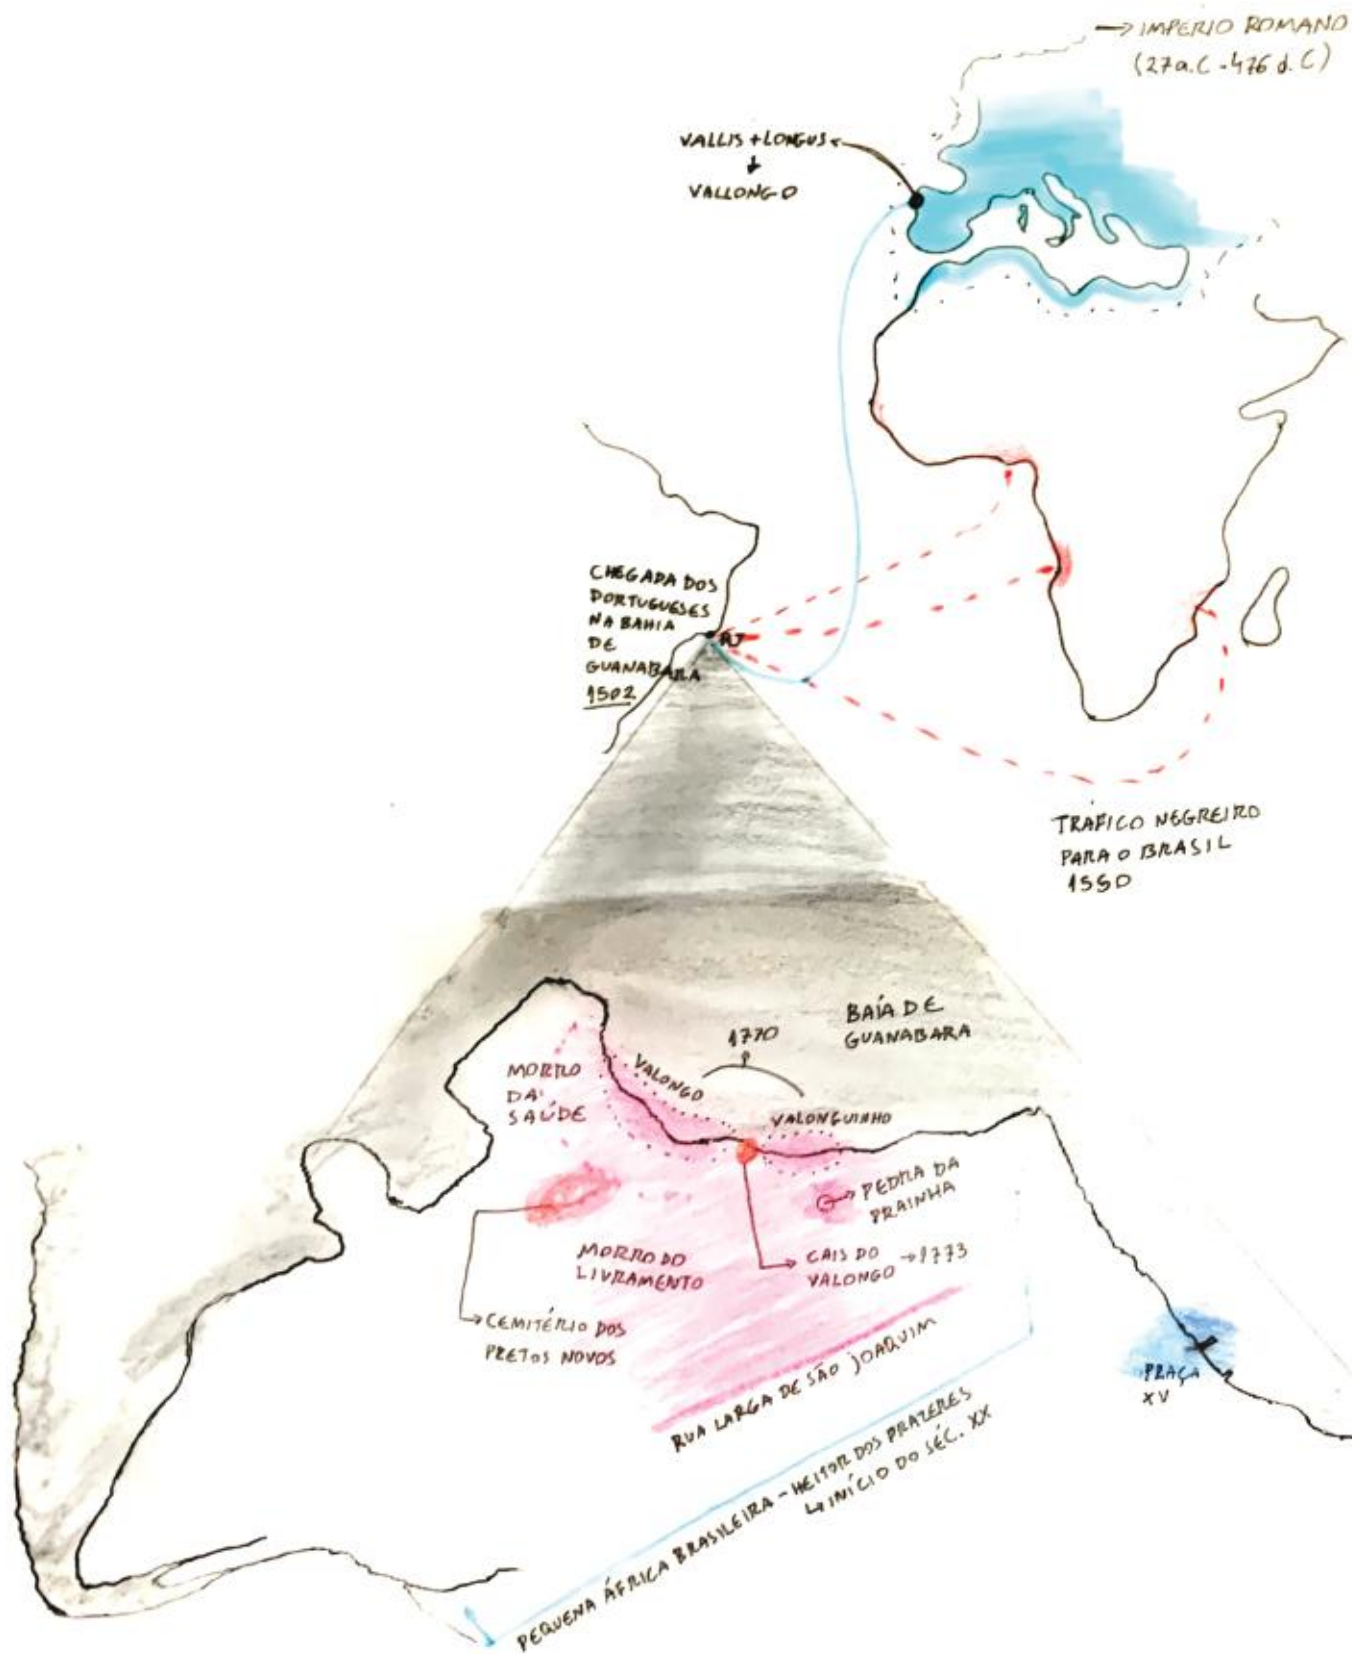 → IMPERIO ROMANO
(27 a.C - 476 d.C)
VALLIS + LONGUS
↓
VALLONGO
CHEGADA DOS
PORTUGUESES
NA BAHIA
DE
GUANABARA
1502
RJ
TRÁFICO NEGREIRO
PARA O BRASIL
1550
BAÍA DE
GUANABARA
1770
MORRO
DA
SAÚDE
VALONGO
VALONGUINHO
PEDRA DA
PRAINHA
MORRO DO
LIVRAMENTO
CAIS DO
VALONGO → 1773
CEMITÉRIO DOS
PRETOS NOVOS
RUA LARGA DE SÃO JOAQUIM
PRAÇA
XV
PEQUENA ÁFRICA BRASILEIRA - HEITOR DOS PRAZERES
↳ INÍCIO DO SÉC. XX